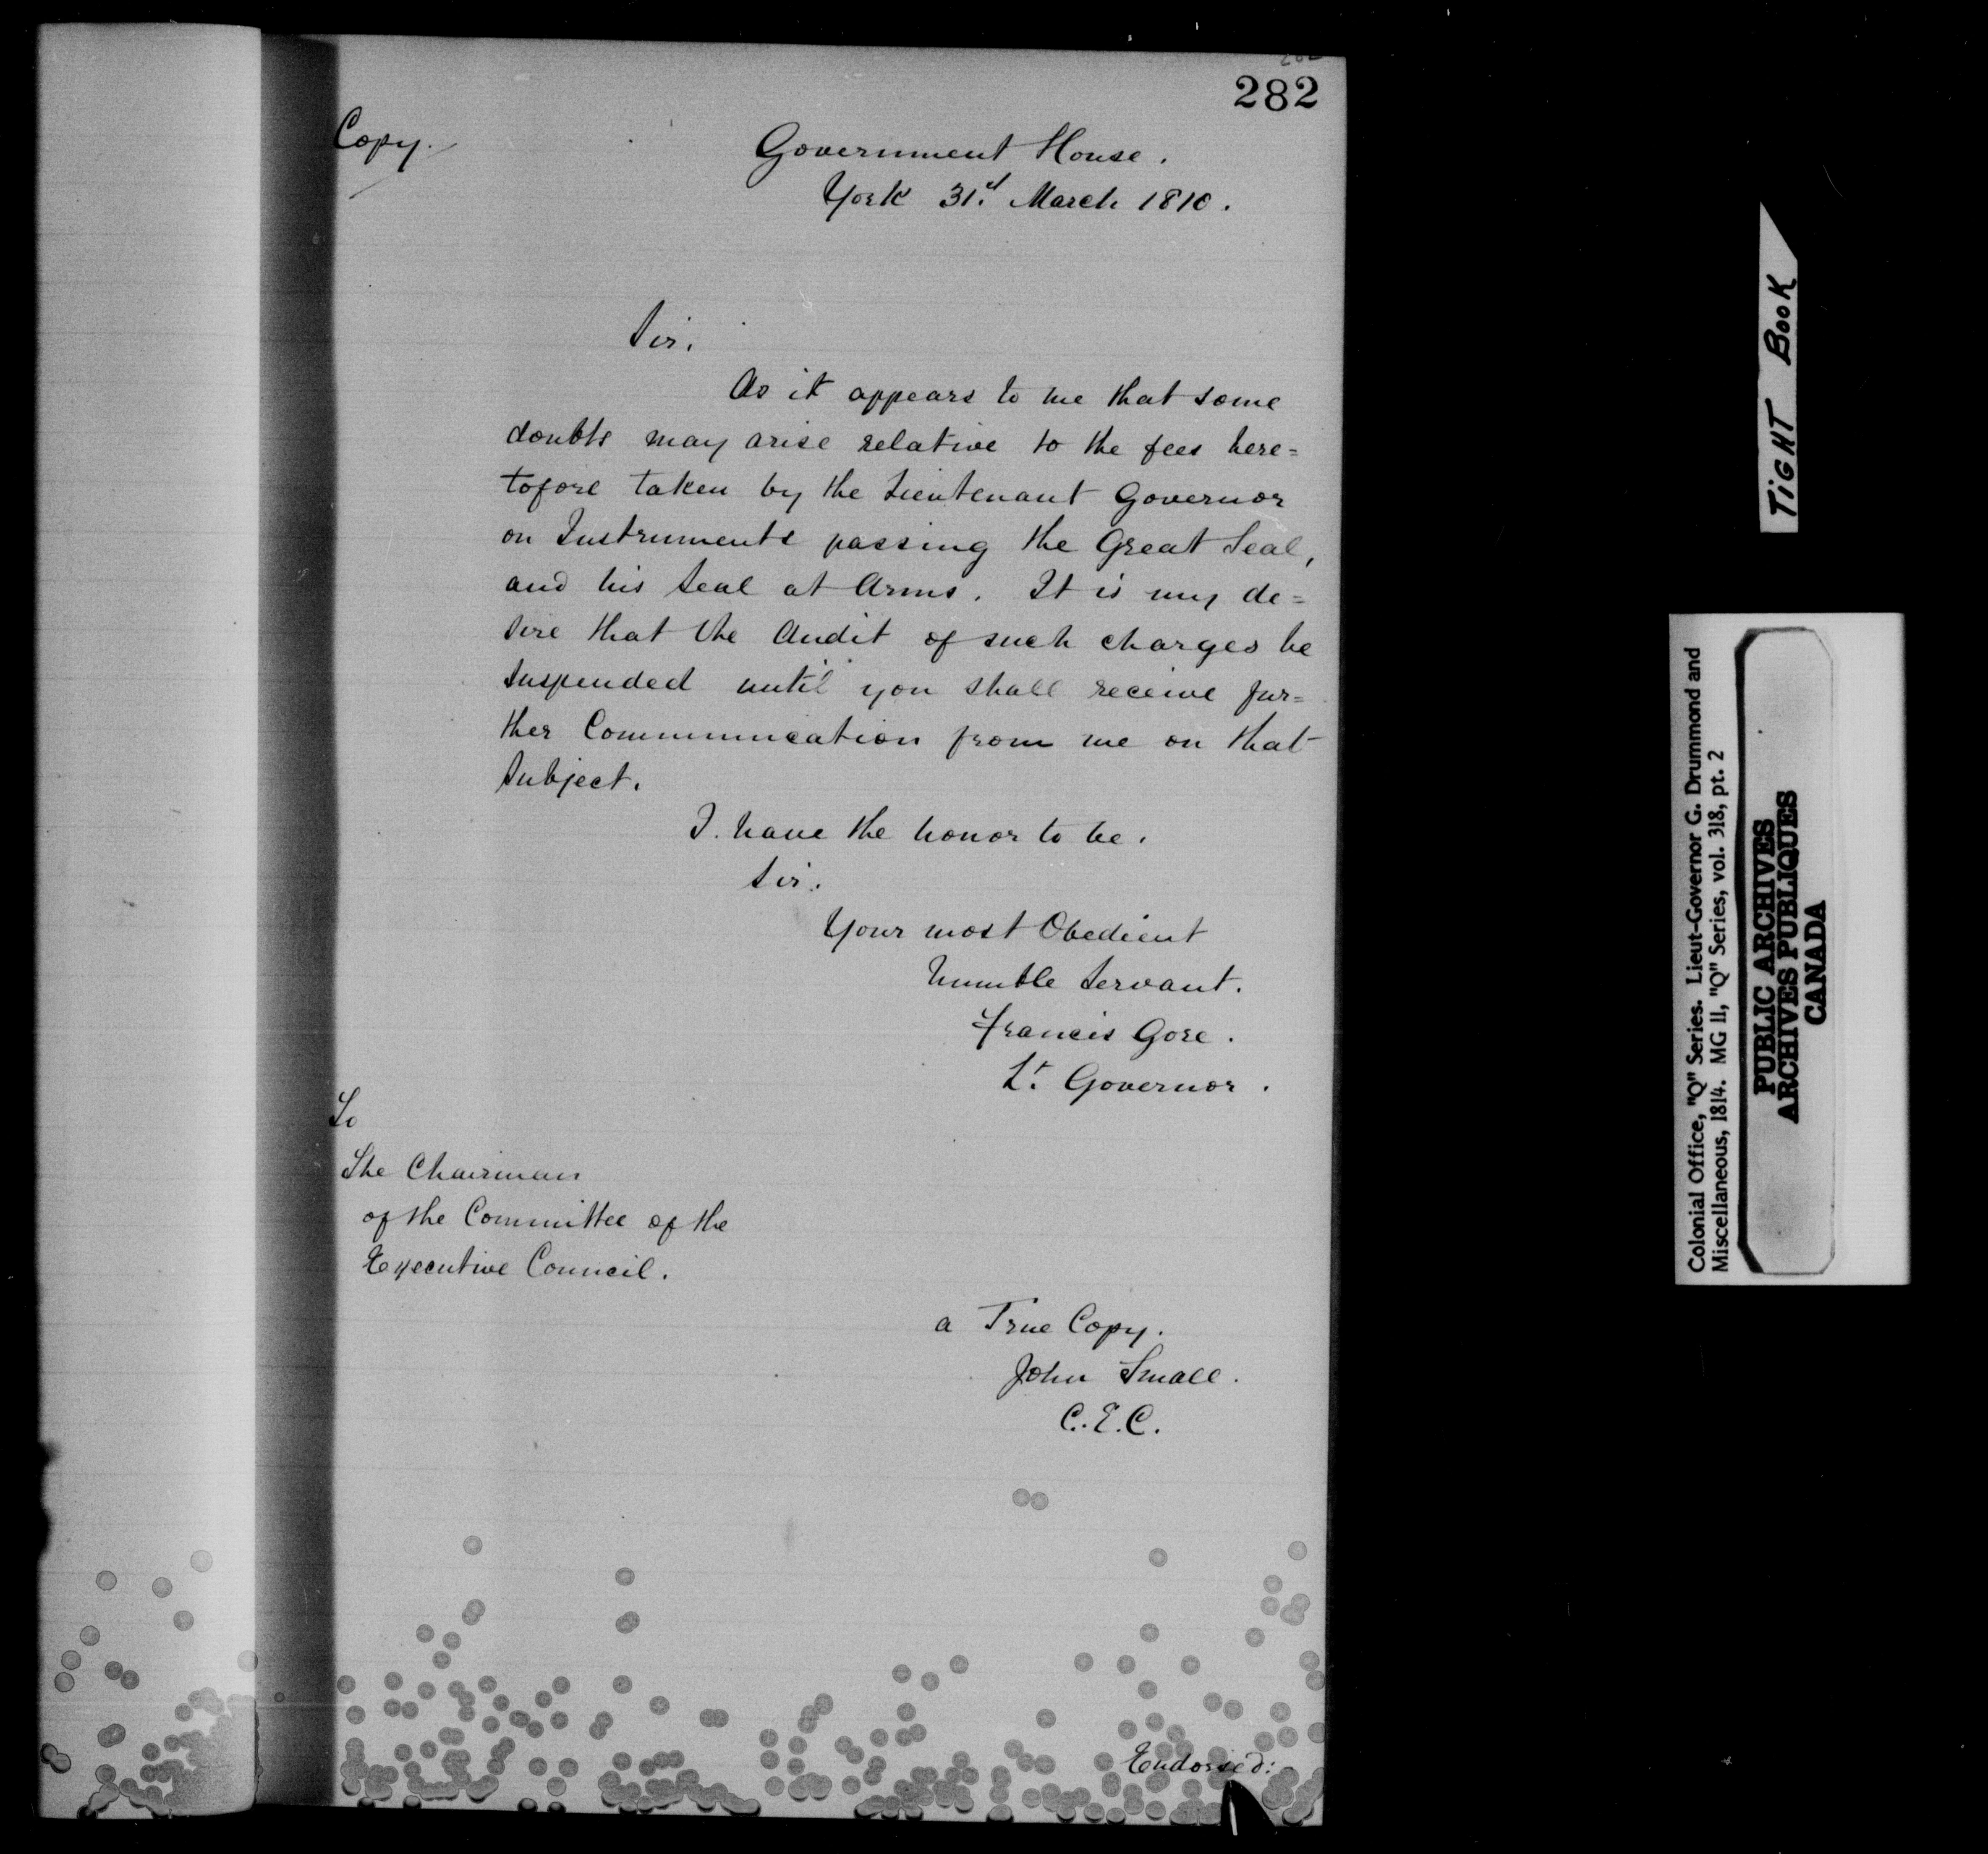 282
Copy.
Government House.
York 31st March 1810.
Sir,
As it appears to me that some
doubts may arise relative to the fees here=
tofore taken by the Lieutenant Governor
on Instruments passing the Great Seal,
and his Seal at Arms. It is my de=
sire that the Audit of such charges be
suspended until you shall receive fur=
ther Communication from me on that
Subject.
I have the honor to be.
Sir.
Your most Obedient
humble Servant.
Francis Gore.
Lt. Governor.
To
The Chairman
of the Committee of the
Executive Council.
a True Copy.
John Small.
C.E.C.
Endorsed:
TIGHT BOOK
Colonial Office, "Q" Series. Lieut-Governor G. Drummond and
Miscellaneous, 1814. MG 11, "Q" Series, vol. 318, pt. 2
PUBLIC ARCHIVES
ARCHIVES PUBLIQUES
CANADA